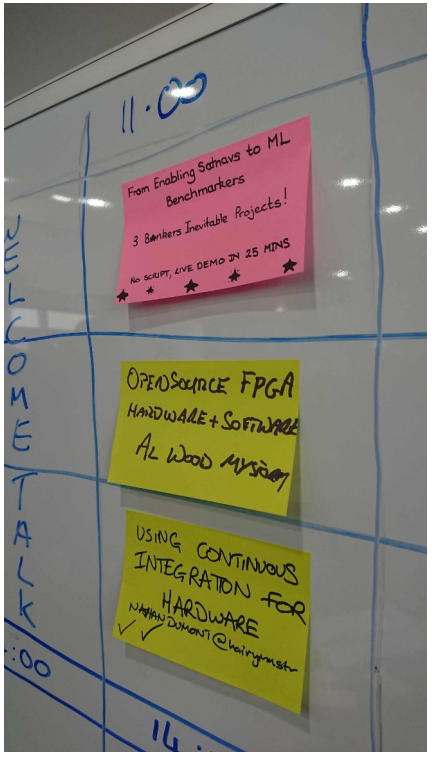 11.00
WELCOME TALK
From Enabling Satnavs to ML
Benchmarkers
3 Bonkers Inevitable Projects!
NO SCRIPT, LIVE DEMO IN 25 MINS
OPENSOURCE FPGA
HARDWARE + SOFTWARE
AL WOOD
USING CONTINUOUS
INTEGRATION FOR
HARDWARE
NATHAN DUMONT
:00
14